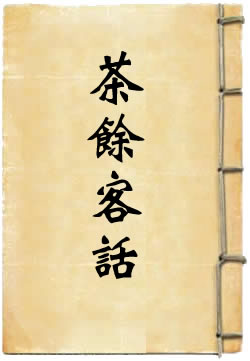 茶餘客話